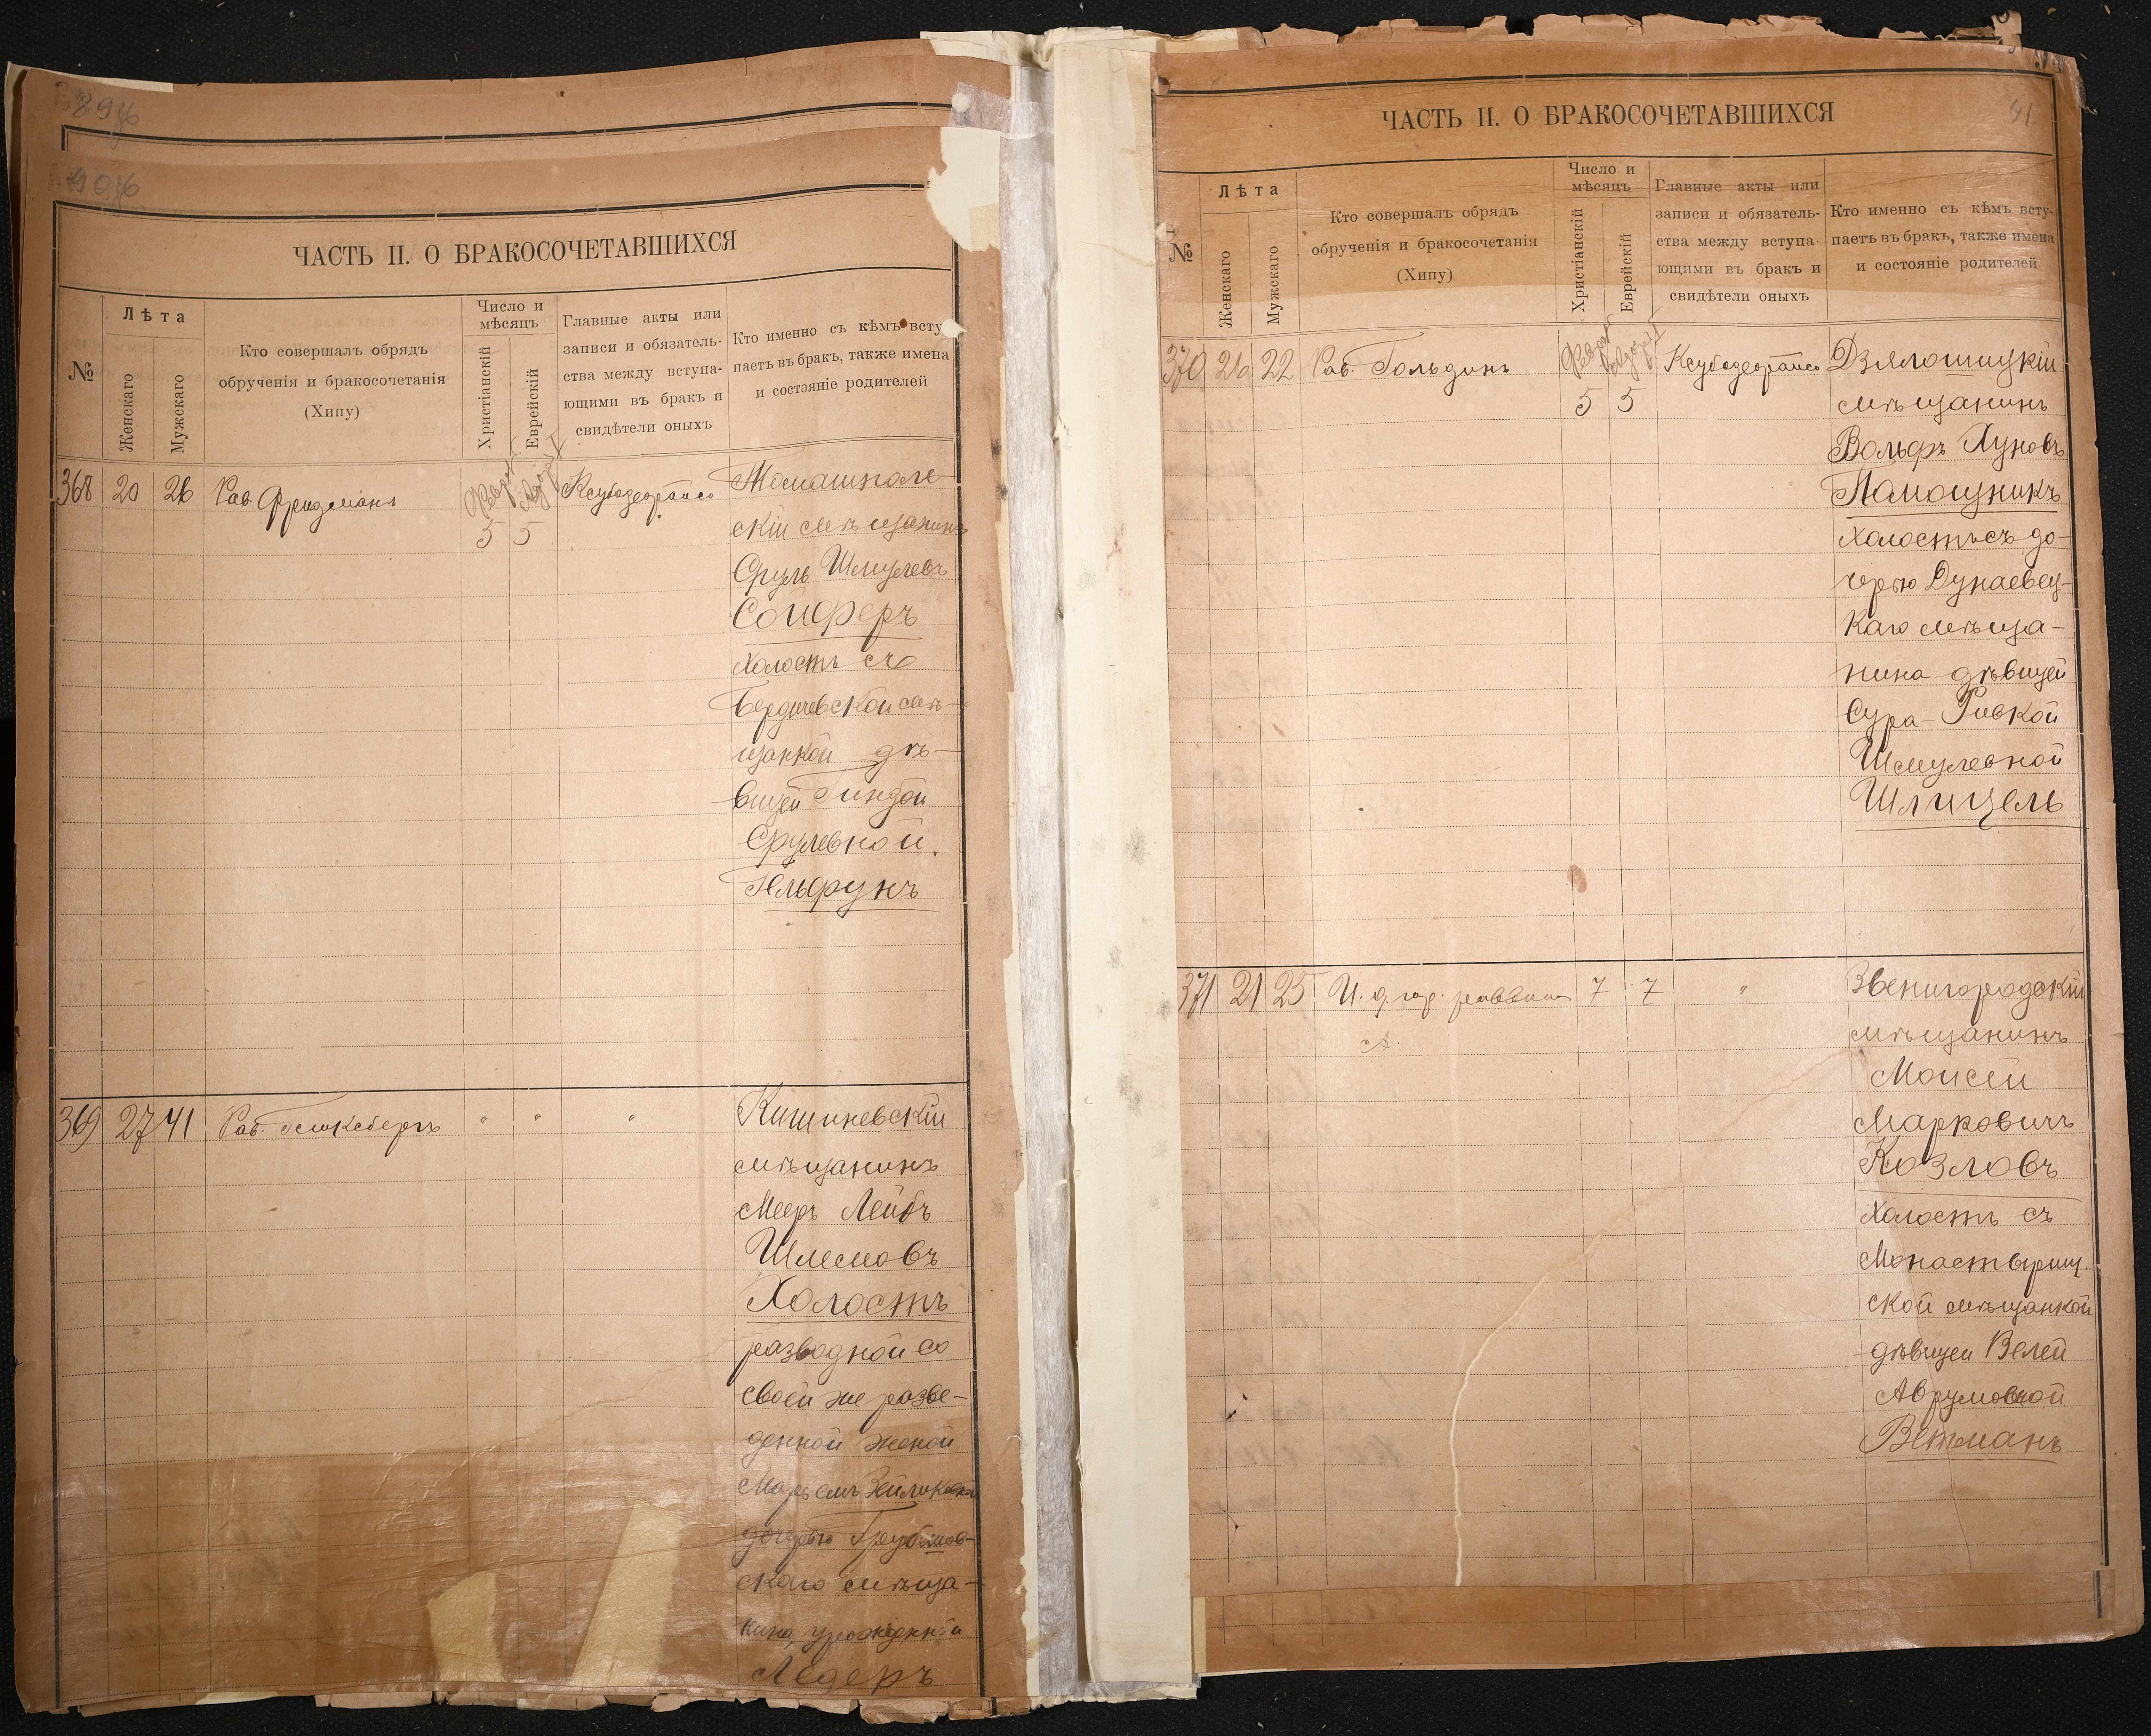 ЧАСТЬ II. О БРАКОСОЧЕТАВШИХСЯ
№
Лѣта
Женскаго
Мужскаго
Кто совершалъ обрядъ
обрученія и бракосочетанія
(Хипу)
Число и
мѣсяцъ
Христіанскій
Еврейскій
Главные акты или
записи и обязатель-
ства между вступа-
ющими въ бракъ и
свидѣтели оныхъ
Кто именно съ кѣмъ всту-
паетъ въ бракъ, также имена
и состояніе родителей
368 20 26 Рав. Фридманъ
5 5
Томашполь-
скій мѣщанинъ
Сруль Шмулевъ
Сойферъ
холостъ съ
Бердичевской мѣ-
щанкой дѣ-
вицей Гиндой
Срулевной
Гельфунъ
369 27 41 Рав. " " "
Кишиневскій
мѣщанинъ
Мееръ Лейбъ
Шлемовъ
Холостъ
разводной со
своей же разве-
денной женой
дочерью
скаго мѣща-
нина, урожденной
Ледеръ
ЧАСТЬ II. О БРАКОСОЧЕТАВШИХСЯ
91
№
Лѣта
Женскаго
Мужскаго
Кто совершалъ обрядъ
обрученія и бракосочетанія
(Хипу)
Число и
мѣсяцъ
Христіанскій
Еврейскій
Главные акты или
записи и обязатель-
ства между вступа
ющими въ бракъ и
свидѣтели оныхъ
Кто именно съ кѣмъ всту-
паетъ въ бракъ, также имена
и состояніе родителей
370 26 22 Рав. Гольдинъ
5 5
Дзялошицкій
мѣщанинъ
Вольфъ Хуновъ
Памощникъ
холостъ съ до-
черью Дунаевец-
каго мѣща-
нина дѣвицей
Сура-Ривкой
Шмулевной
Шлицель
371 21 25 И. д. гор. раввина 7 7 "
Звенигородскій
мѣщанинъ
Моисей
Марковичъ
Козловъ
холостъ съ
Монастырищ-
ской мѣщанкой
дѣвицей Велей
Аврумовной
Ветманъ